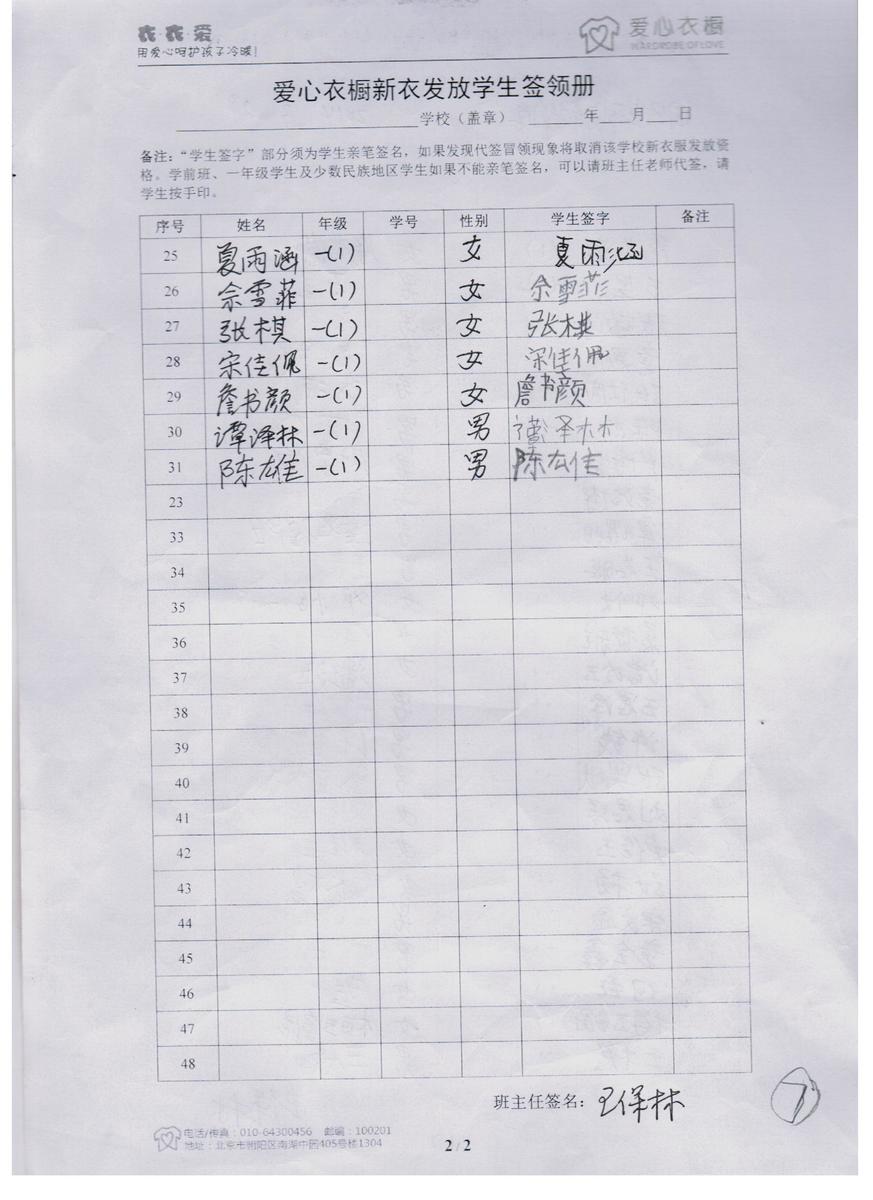 衣·衣·爱
用爱心呵护孩子冷暖!
爱心衣橱
WARDROBE OF LOVE
爱心衣橱新衣发放学生签领册
学校（盖章） 年 月 日
备注：“学生签字”部分须为学生亲笔签名，如果发现代签冒领现象将取消该学校新衣服发放资
格。学前班、一年级学生及少数民族地区学生如果不能亲笔签名，可以请班主任老师代签，请
学生按手印。
序号 姓名 年级 学号 性别 学生签字 备注
25 夏雨涵 一(1) 女 夏雨涵
26 佘雪菲 一(1) 女 佘雪菲
27 张棋 一(1) 女 张棋
28 宋佳佩 一(1) 女 宋佳佩
29 詹书颜 一(1) 女 詹书颜
30 谭泽林 一(1) 男 谭泽林
31 陈雄 一(1) 男
23
33
34
35
36
37
38
39
40
41
42
43
44
45
46
47
48
班主任签名：王保林
7
电话/传真：010-64300456 邮编：100201
地址：北京市朝阳区南湖中园405号楼1304
2 / 2